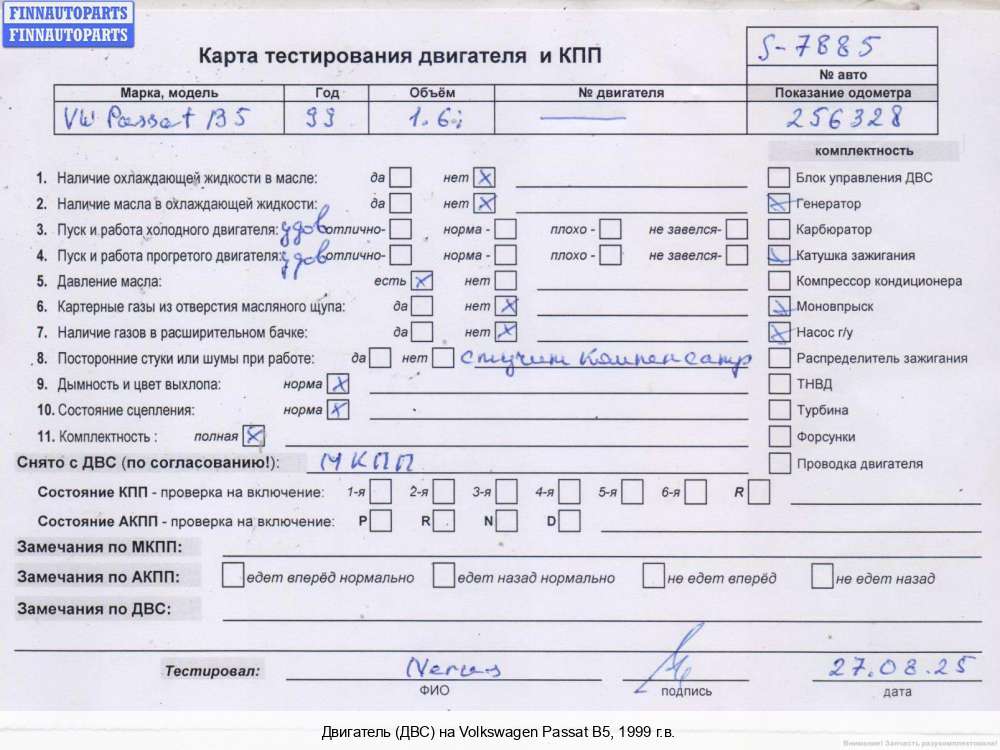 FINNAUTOPARTS
FINNAUTOPARTS
Карта тестирования двигателя и КПП
S-7885
№ авто
Марка, модель Год Объём № двигателя Показание одометра
VW Passat B5 99 1.6i — 256328
комплектность
1. Наличие охлаждающей жидкости в масле: да нет x Блок управления ДВС
2. Наличие масла в охлаждающей жидкости: да нет x x Генератор
3. Пуск и работа холодного двигателя: удов отлично- норма - плохо - не завелся- Карбюратор
4. Пуск и работа прогретого двигателя: удов отлично- норма - плохо - не завелся- x Катушка зажигания
5. Давление масла: есть x нет Компрессор кондиционера
6. Картерные газы из отверстия масляного щупа: да нет x x Моновпрыск
7. Наличие газов в расширительном бачке: да нет x x Насос г/у
8. Посторонние стуки или шумы при работе: да нет стучит компенсатр Распределитель зажигания
9. Дымность и цвет выхлопа: норма x ТНВД
10. Состояние сцепления: норма x Турбина
11. Комплектность : полная x Форсунки
Снято с ДВС (по согласованию!): МКПП Проводка двигателя
Состояние КПП - проверка на включение: 1-я 2-я 3-я 4-я 5-я 6-я R
Состояние АКПП - проверка на включение: P R N D
Замечания по МКПП:
Замечания по АКПП: едет вперёд нормально едет назад нормально не едет вперёд не едет назад
Замечания по ДВС:
Тестировал: 27.08.25
ФИО подпись дата
Двигатель (ДВС) на Volkswagen Passat B5, 1999 г.в.
Внимание! Запчасть разукомплектована!